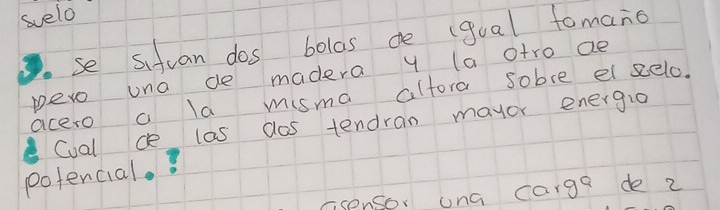 suelo
3. se situan dos bolas de igual tomaño
pero una de madera y la otro de
acero a la misma altora sobre el suelo.
¿ Cual de las dos tendran mayor energio
potencial.?
asensor una carga de 2